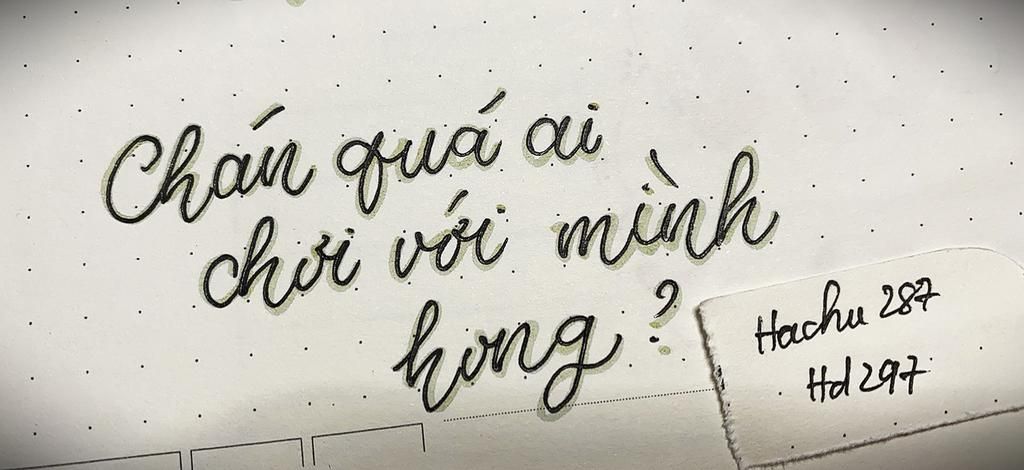 Chán quá ai
chơi với mình
hong?
Hachu 287
Hd 297